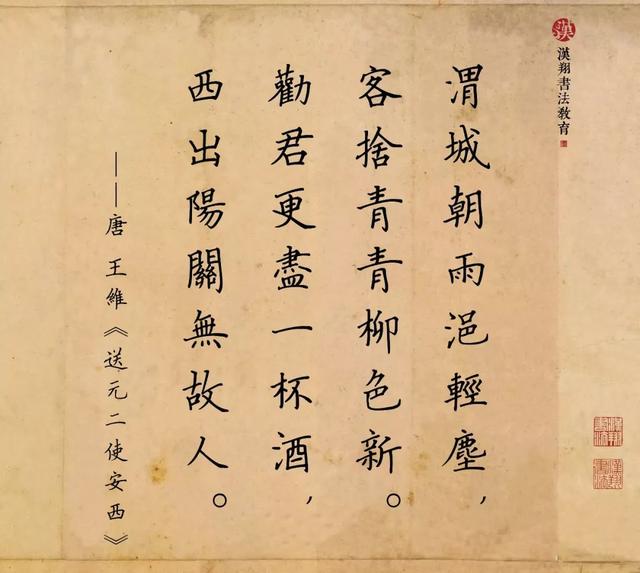 漢翔書法教育
渭城朝雨浥輕塵，
客捨青青柳色新。
勸君更盡一杯酒，
西出陽關無故人。
——唐 王維《送元二使安西》